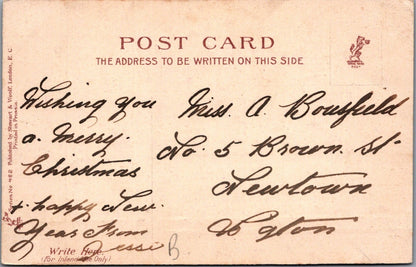 POST CARD
THE ADDRESS TO BE WRITTEN ON THIS SIDE
Wishing you
a. Merry.
Christmas
& happy New.
Year From
Jessie B
Write Here.
(For Inland Use Only)
Miss. A. Bousfield
No. 5 Brown. St
Newtown
Wgton
Series No 482 Published by Stewart & Woolf, London, E. C.
Printed in Prussia.